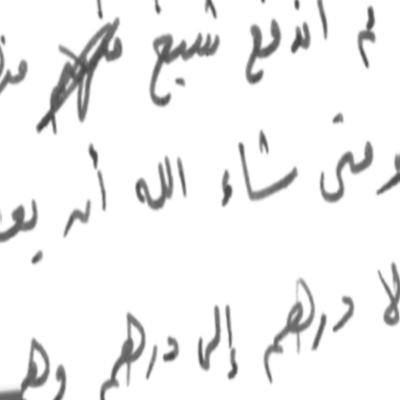 ثم اندفع شيخ
ومتى شاء الله أن يعـ
لا درهم إلى درهم وهـ